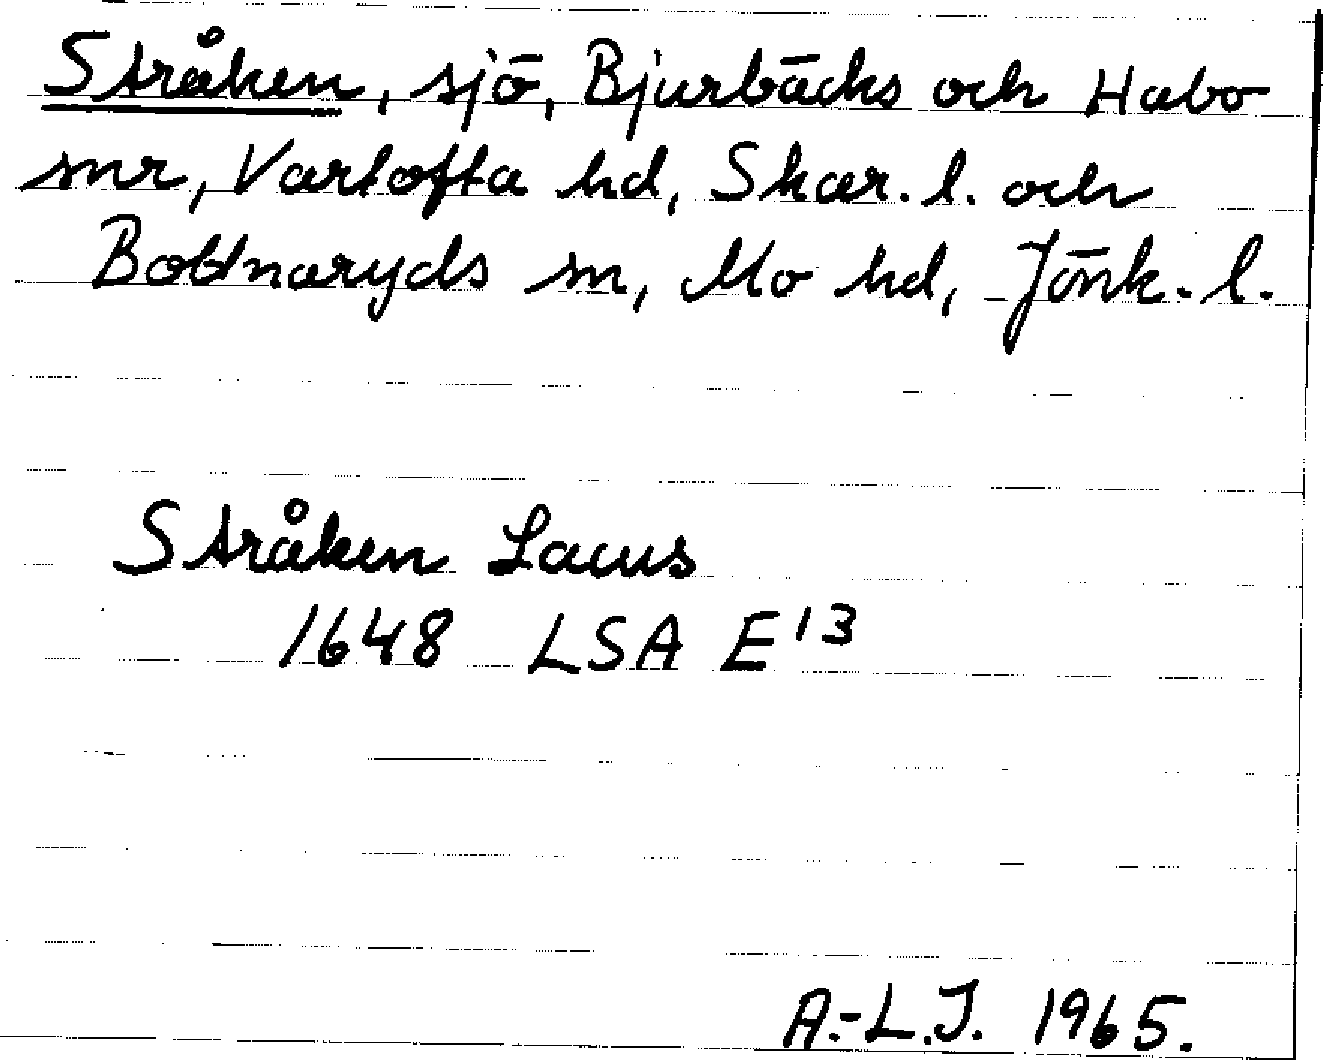 Stråken, sjö, Bjurbäcks och Habo
snr, Vartofta hd, Skar. l. och
Bottnaryds sn, Mo hd, Jönk. l.
Stråken Lacus
1648 LSA E¹³
A.-L.J. 1965.